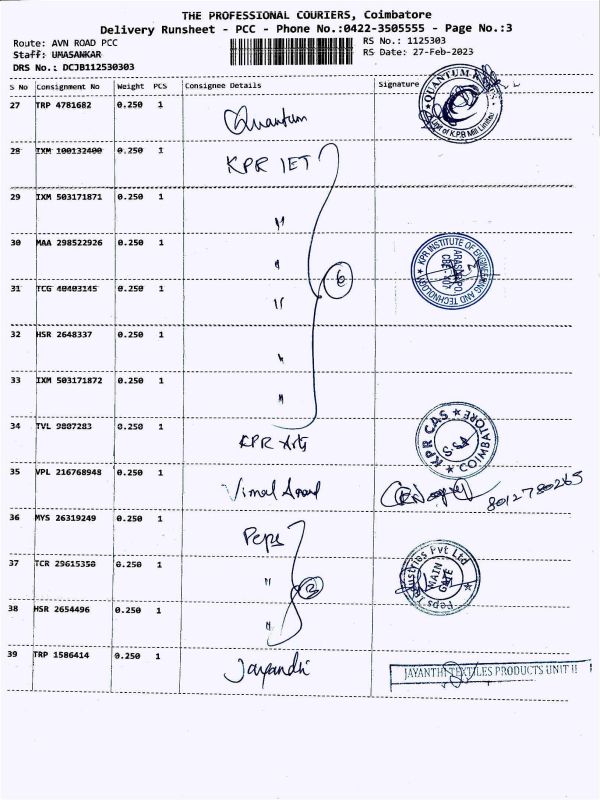 THE PROFESSIONAL COURIERS, Coimbatore
Delivery Runsheet - PCC - Phone No.:0422-3505555 - Page No.:3
Route: AVN ROAD PCC RS No.: 1125303
Staff: UMASANKAR RS Date: 27-Feb-2023
DRS No.: DCJB112530303
S No Consignment No Weight PCS Consignee Details Signature
27 TRP 4781682 0.250 1 Quantum
28 IXM 100132400 0.250 1 KPR IET
29 IXM 503171871 0.250 1 "
30 MAA 298522926 0.250 1 "
6
KPR INSTITUTE OF ENGINEERING AND TECHNOLOGY
31 TCG 40403145 0.250 1 "
32 HSR 2648337 0.250 1 "
33 IXM 503171872 0.250 1 "
34 TVL 9807283 0.250 1 KPR Arts
KPR CAS ★ COIMBATORE ★
35 VPL 216768948 0.250 1 Vimal Anand 8012780265
36 MYS 26319249 0.250 1 Peps
37 TCR 29615350 0.250 1 "
3
Peps Industries Pvt Ltd
MAIN
GATE
38 HSR 2654496 0.250 1 "
39 TRP 1586414 0.250 1 Jayandhi
JAYANTHI TEXTILES PRODUCTS UNIT II